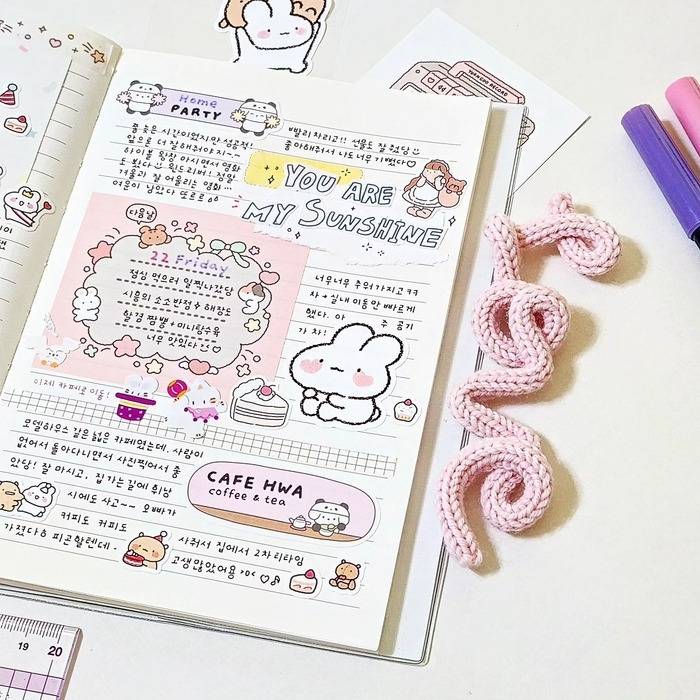 Home
PARTY
앞으로 더 잘해줘야지~~
하이볼 왕창 마시면서 영화
도 봤다 윈드리버! 정말
겨울과 잘 어울리는 영화...
여운이 남았다 또르르
빨리 차리고!! 선물도 잘 줬당
좋아해줘서 나도 너무 기뻤다♡
YOU ARE
MY SUNSHINE
다음날
22 Friday
점심 먹으러 일찍 나갔당
시흥의 소소반점 해장도
할겸 짬뽕+미니탕수육
너무 맛있다
너무너무 추워가지고 ㅋㅋ
차→실내 이동만 빠르게
했다. 아 주 공기
가 차!
이제 카페로 이동
모델하우스 같은 넓은 카페였는데, 사람이
없어서 돌아다니면서 사진찍어서 좋
았당! 잘 마시고, 집가는길에 휘낭
시에도 사고~~ 오빠가
커피도 커피도
가졌다 피곤할텐데..
사줘서 집에서 2차 티타임
고생 많았어용
CAFE HWA
coffee & tea
19 20